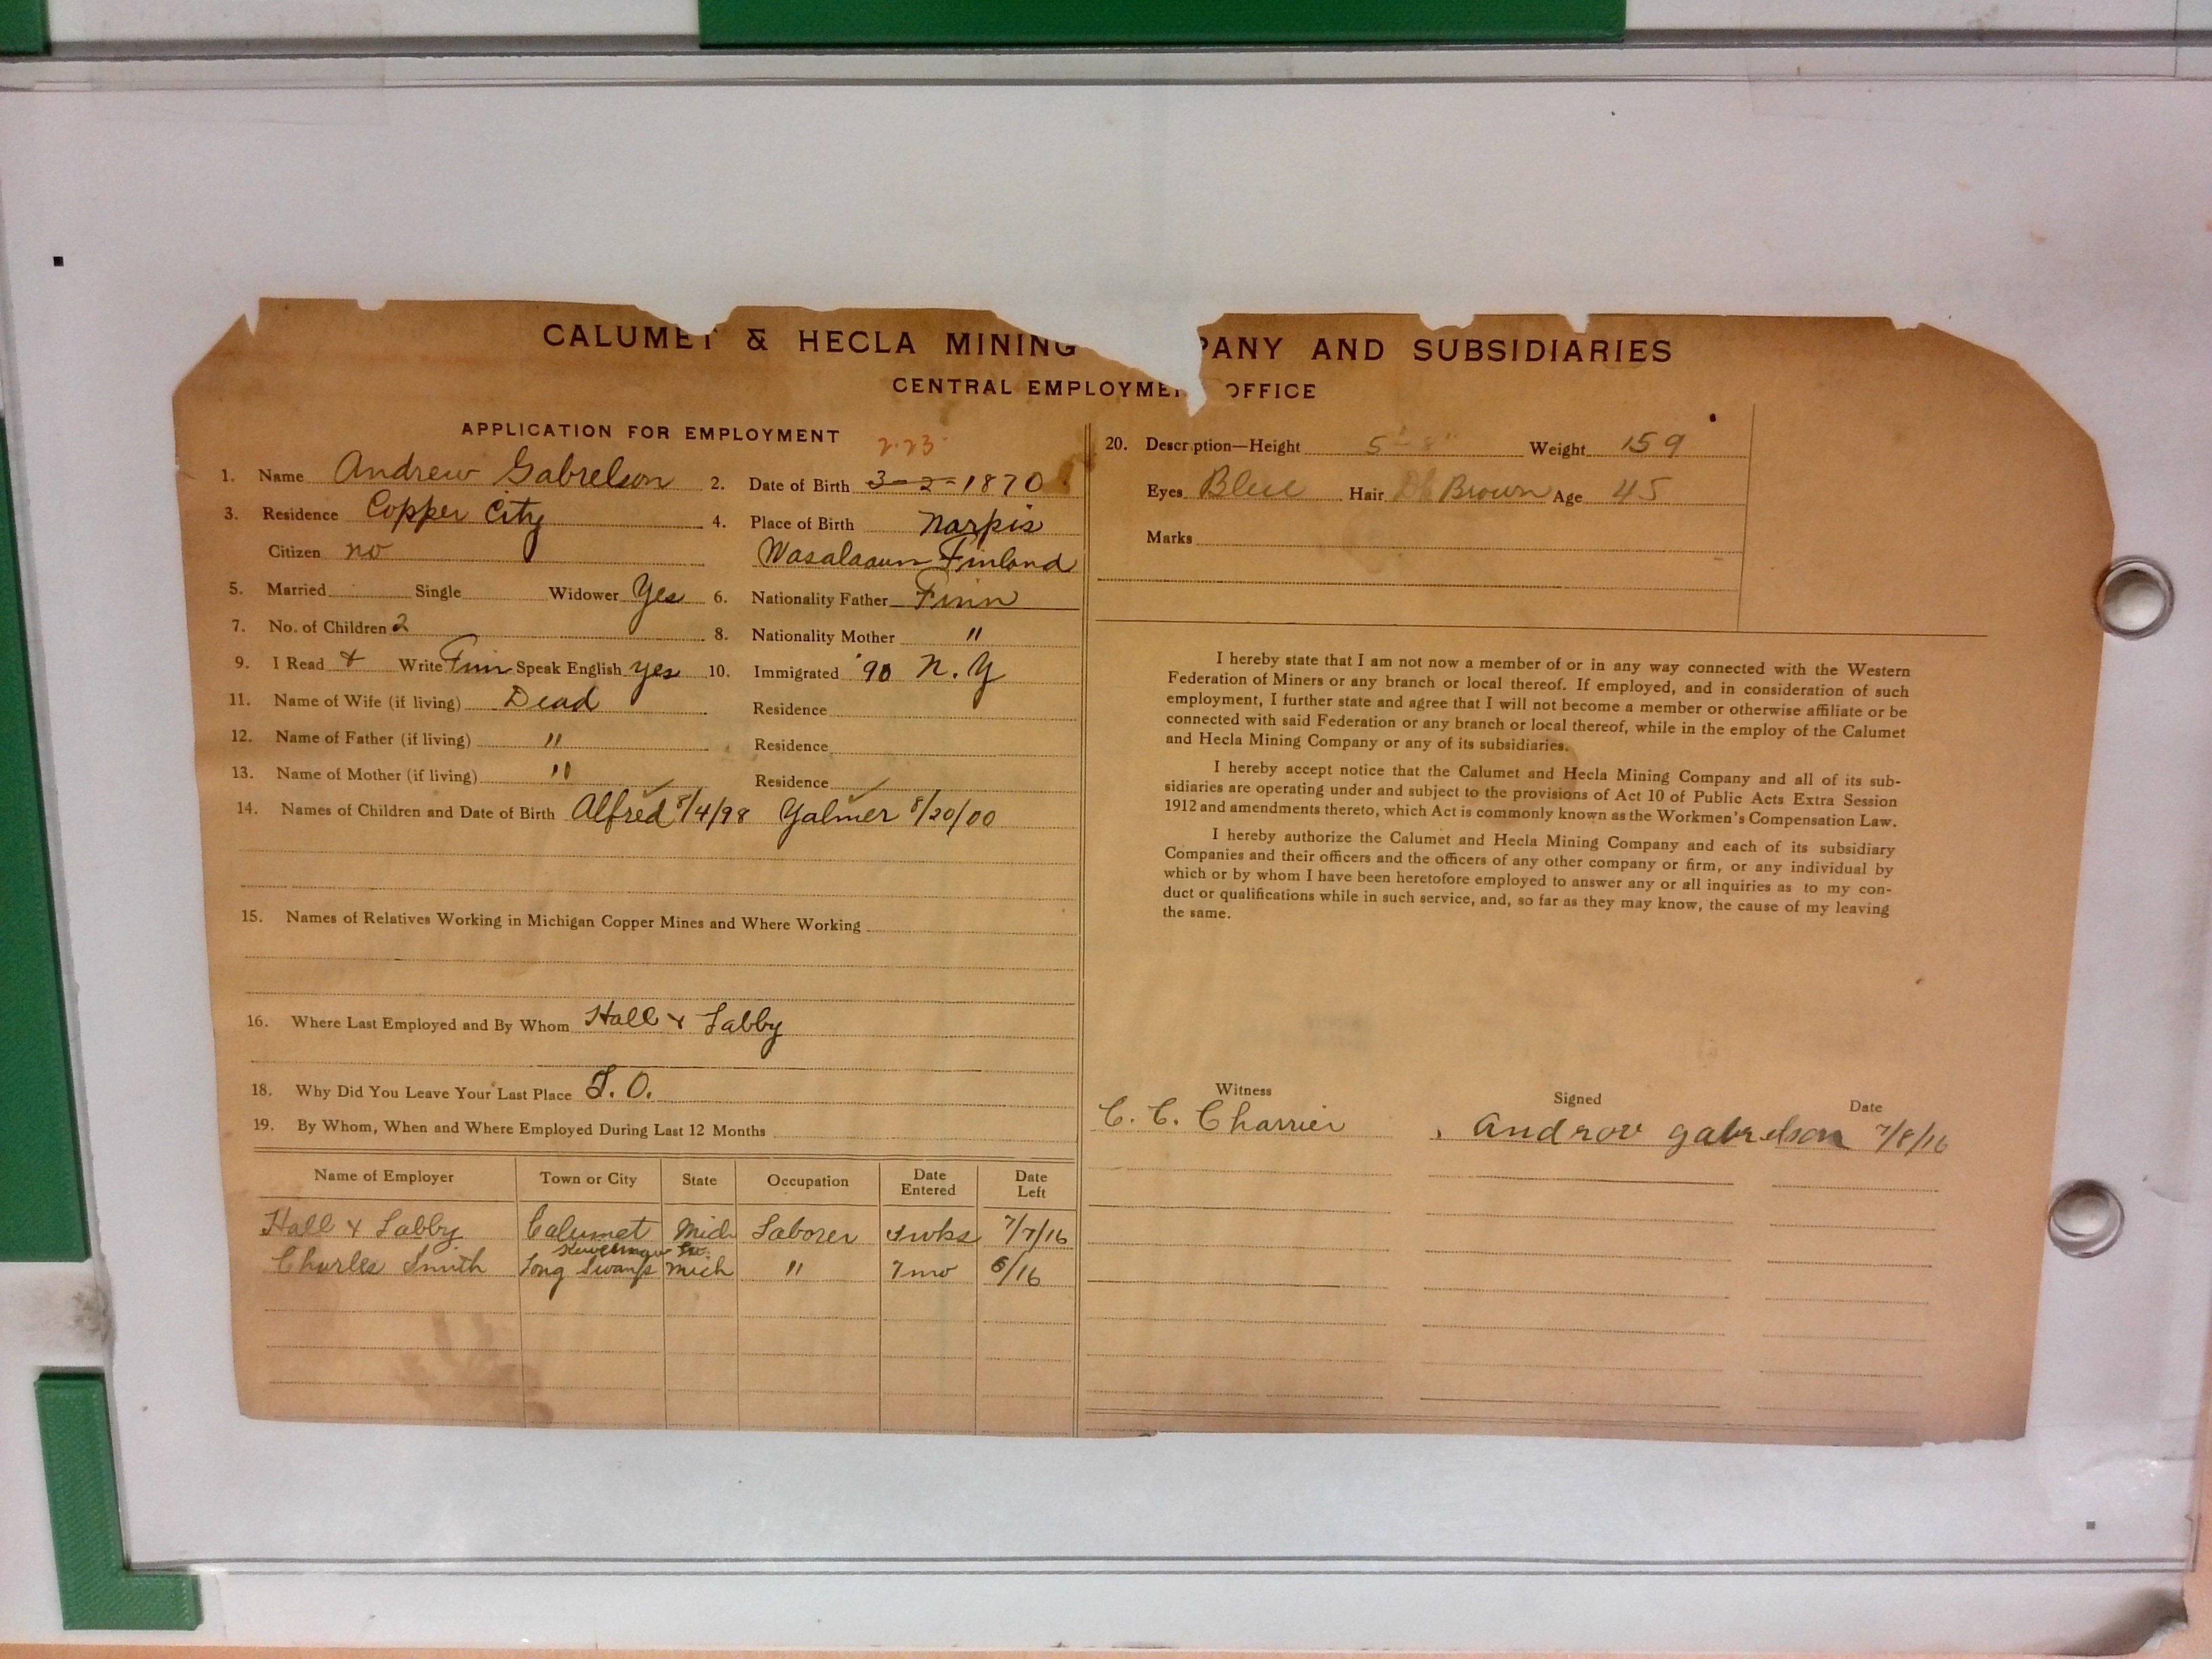 CALUMET & HECLA MINING PANY AND SUBSIDIARIES
CENTRAL EMPLOYMEN OFFICE
APPLICATION FOR EMPLOYMENT
2-23
1. Name Andrew Gabrelson 2. Date of Birth 3-2-1870
3. Residence Copper City 4. Place of Birth Narpis
Citizen no Wasalaaun Finland
5. Married Single Widower Yes 6. Nationality Father Finn
7. No. of Children 2 8. Nationality Mother "
9. I Read + Write Finn Speak English yes 10. Immigrated '90 N.Y
11. Name of Wife (if living) Dead Residence
12. Name of Father (if living) " Residence
13. Name of Mother (if living) " Residence
14. Names of Children and Date of Birth Alfred 8/4/98 Yalmer 8/20/00
15. Names of Relatives Working in Michigan Copper Mines and Where Working
16. Where Last Employed and By Whom Hall & Labby
18. Why Did You Leave Your Last Place L.O.
19. By Whom, When and Where Employed During Last 12 Months
Name of Employer Town or City State Occupation Date Entered Date Left
Hall & Labby Calumet Mich Laborer wks 7/7/16
Keweenaw Co.
Charles Smith Long Swamp Mich " 7mo 6/16
20. Description—Height 5'-8" Weight 159
Eyes Blue Hair Dk Brown Age 45
Marks
I hereby state that I am not now a member of or in any way connected with the Western
Federation of Miners or any branch or local thereof. If employed, and in consideration of such
employment, I further state and agree that I will not become a member or otherwise affiliate or be
connected with said Federation or any branch or local thereof, while in the employ of the Calumet
and Hecla Mining Company or any of its subsidiaries.
I hereby accept notice that the Calumet and Hecla Mining Company and all of its sub-
sidiaries are operating under and subject to the provisions of Act 10 of Public Acts Extra Session
1912 and amendments thereto, which Act is commonly known as the Workmen's Compensation Law.
I hereby authorize the Calumet and Hecla Mining Company and each of its subsidiary
Companies and their officers and the officers of any other company or firm, or any individual by
which or by whom I have been heretofore employed to answer any or all inquiries as to my con-
duct or qualifications while in such service, and, so far as they may know, the cause of my leaving
the same.
Witness Signed Date
C. C. Charrier Androv gabrelson 7/8/16